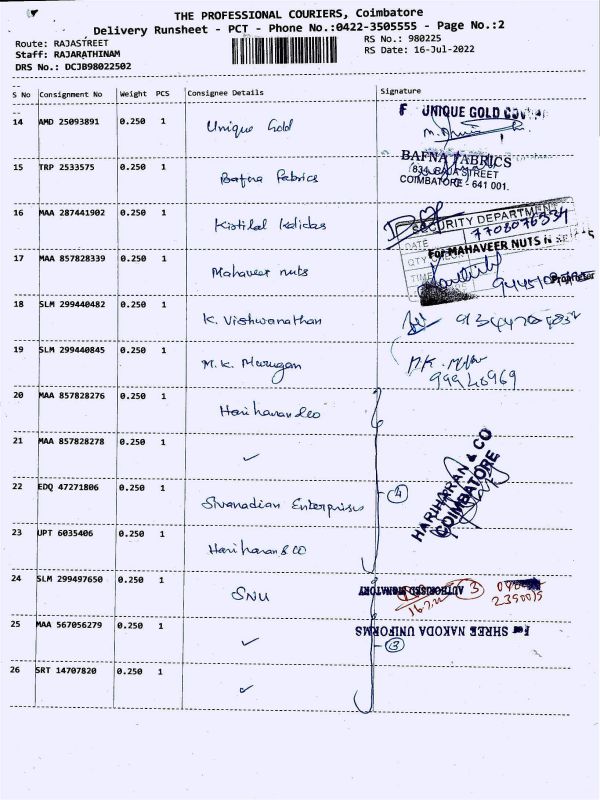 THE PROFESSIONAL COURIERS, Coimbatore
Delivery Runsheet - PCT - Phone No.:0422-3505555 - Page No.:2
Route: RAJASTREET
RS No.: 980225
Staff: RAJARATHINAM
RS Date: 16-Jul-2022
DRS No.: DCJB98022502
S No Consignment No Weight PCS Consignee Details Signature
14 AMD 25093891 0.250 1 Unique Gold
UNIQUE GOLD
15 TRP 2533575 0.250 1 Bafna Fabrics
BAFNA FABRICS
834, RAJA STREET
COIMBATORE - 641 001.
16 MAA 287441902 0.250 1 Kistilal Kalidas
SECURITY DEPARTMENT
DATE
7708076534
QTY
TIME
17 MAA 857828339 0.250 1 Mahaveer nuts
For MAHAVEER NUTS N
Proprietor
18 SLM 299440482 0.250 1 K. Vishwanathan
19 SLM 299440845 0.250 1 M.K. Murugan
M.K.
99940969
20 MAA 857828276 0.250 1 Hariharan & co
21 MAA 857828278 0.250 1 ✓
22 EDQ 47271806 0.250 1 Sivanadian Enterprises
④
HARIHARAN & CO
COIMBATORE
23 UPT 6035406 0.250 1 Hariharan & co
24 SLM 299497650 0.250 1 SNU
AUTHORISED SIGNATORY
③
2350015
25 MAA 567056279 0.250 1 ✓
For SHREE NAKODA UNIFORMS
③
26 SRT 14707820 0.250 1 ✓